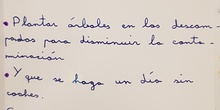 • Plantar árboles en los descam-
pados para disminuir la conta-
minación
• Y que se haga un día sin
coches.